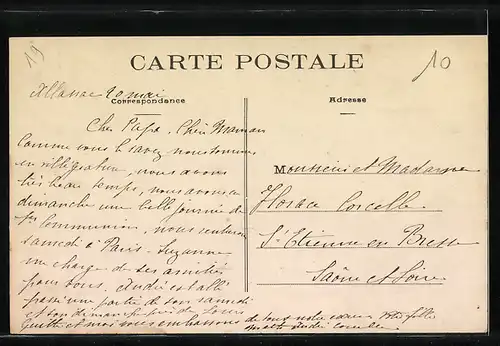 19
10
CARTE POSTALE
Allassac 20 mai
Correspondance
Adresse
Cher Papa, Chère Maman
Comme vous le savez nous sommes
en villégiature, nous avons
très beau temps, nous avons eu
dimanche une belle journée de
1re Communion, nous rentrerons
samedi à Paris. Suzanne
me charge de ses amitiés
pour vous. André est allé
passé une partie de son samedi
et son dimanche près de Louis
et moi vous embrassons de tous notre cœur votre fille
Monsieur et Madame
Horace Corcelle
St Etienne en Bresse
Saône et Loire